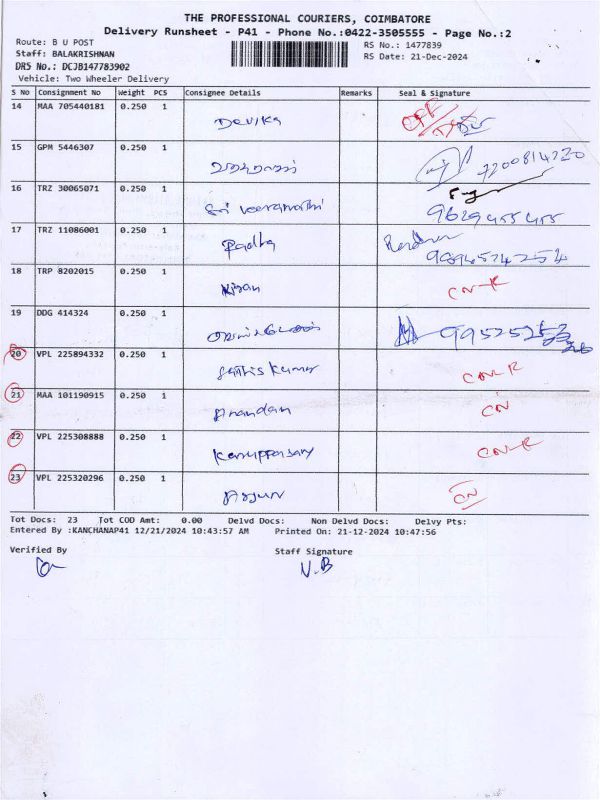 THE PROFESSIONAL COURIERS, COIMBATORE
Delivery Runsheet - P41 - Phone No.:0422-3505555 - Page No.:2
Route: B U POST
RS No.: 1477839
Staff: BALAKRISHNAN
RS Date: 21-Dec-2024
DRS No.: DCJB147783902
Vehicle: Two Wheeler Delivery
S No Consignment No Weight PCS Consignee Details Remarks Seal & Signature
14 MAA 705440181 0.250 1 Devika
15 GPM 5446307 0.250 1 7200814220
16 TRZ 30065071 0.250 1 Sri veeramathi 9629455455
17 TRZ 11086001 0.250 1 Radha
18 TRP 8202015 0.250 1 Kiran CN-R
19 DDG 414324 0.250 1
20 VPL 225894332 0.250 1 Sathis Kumar CN-R
21 MAA 101190915 0.250 1 Anandan CN
22 VPL 225308888 0.250 1 Karuppasary CN-R
23 VPL 225320296 0.250 1 Arjun CN
Tot Docs: 23 Tot COD Amt: 0.00 Delvd Docs: Non Delvd Docs: Delvy Pts:
Entered By :KANCHANAP41 12/21/2024 10:43:57 AM Printed On: 21-12-2024 10:47:56
Verified By Staff Signature
V.B